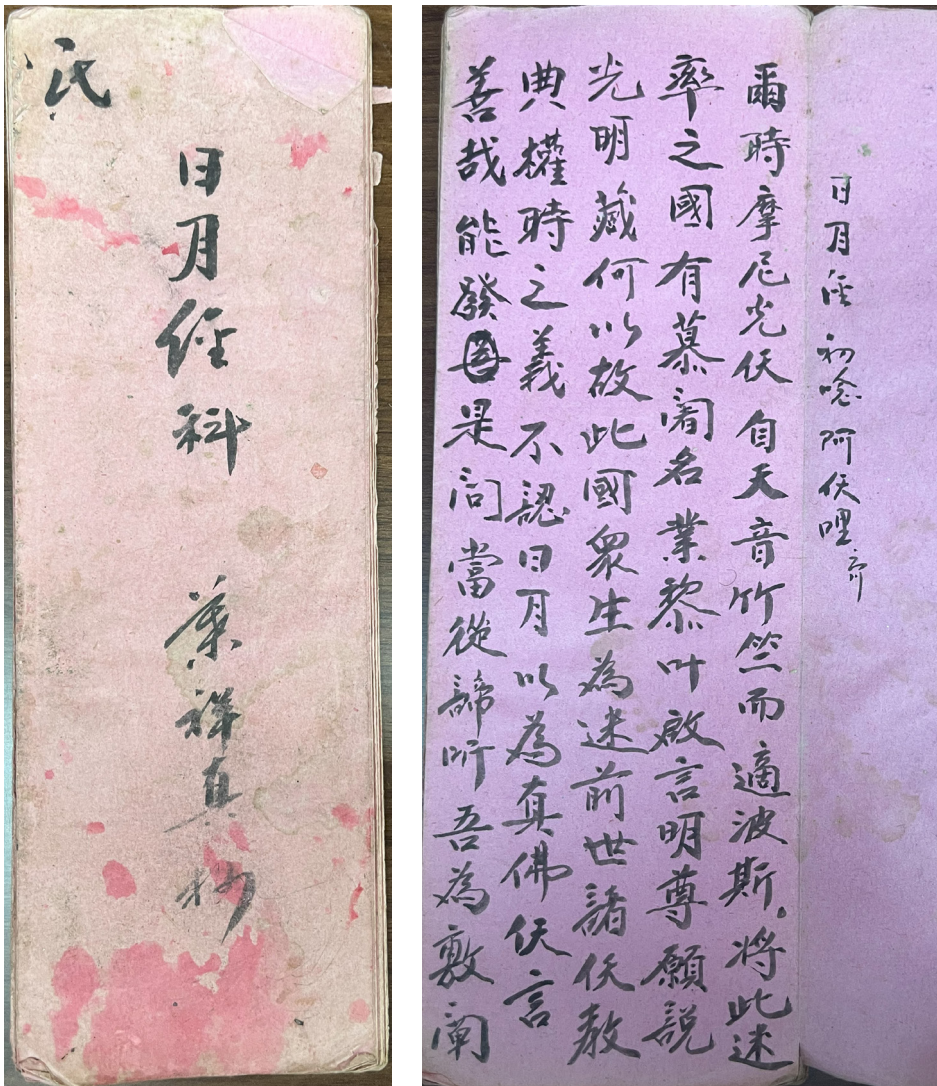 氏
日月經科
葉祥真抄
日月經 初唸阿佅哩齐
爾時摩尼光佅自天音竹竺而適波斯將此迷
率之國有慕闍名業黎叶啟言明尊願說
光明藏何以故此國衆生為迷前世諸佅教
典權時之義不認日月以為真佛佅言
善哉能發是問當從諦听吾為敷闡